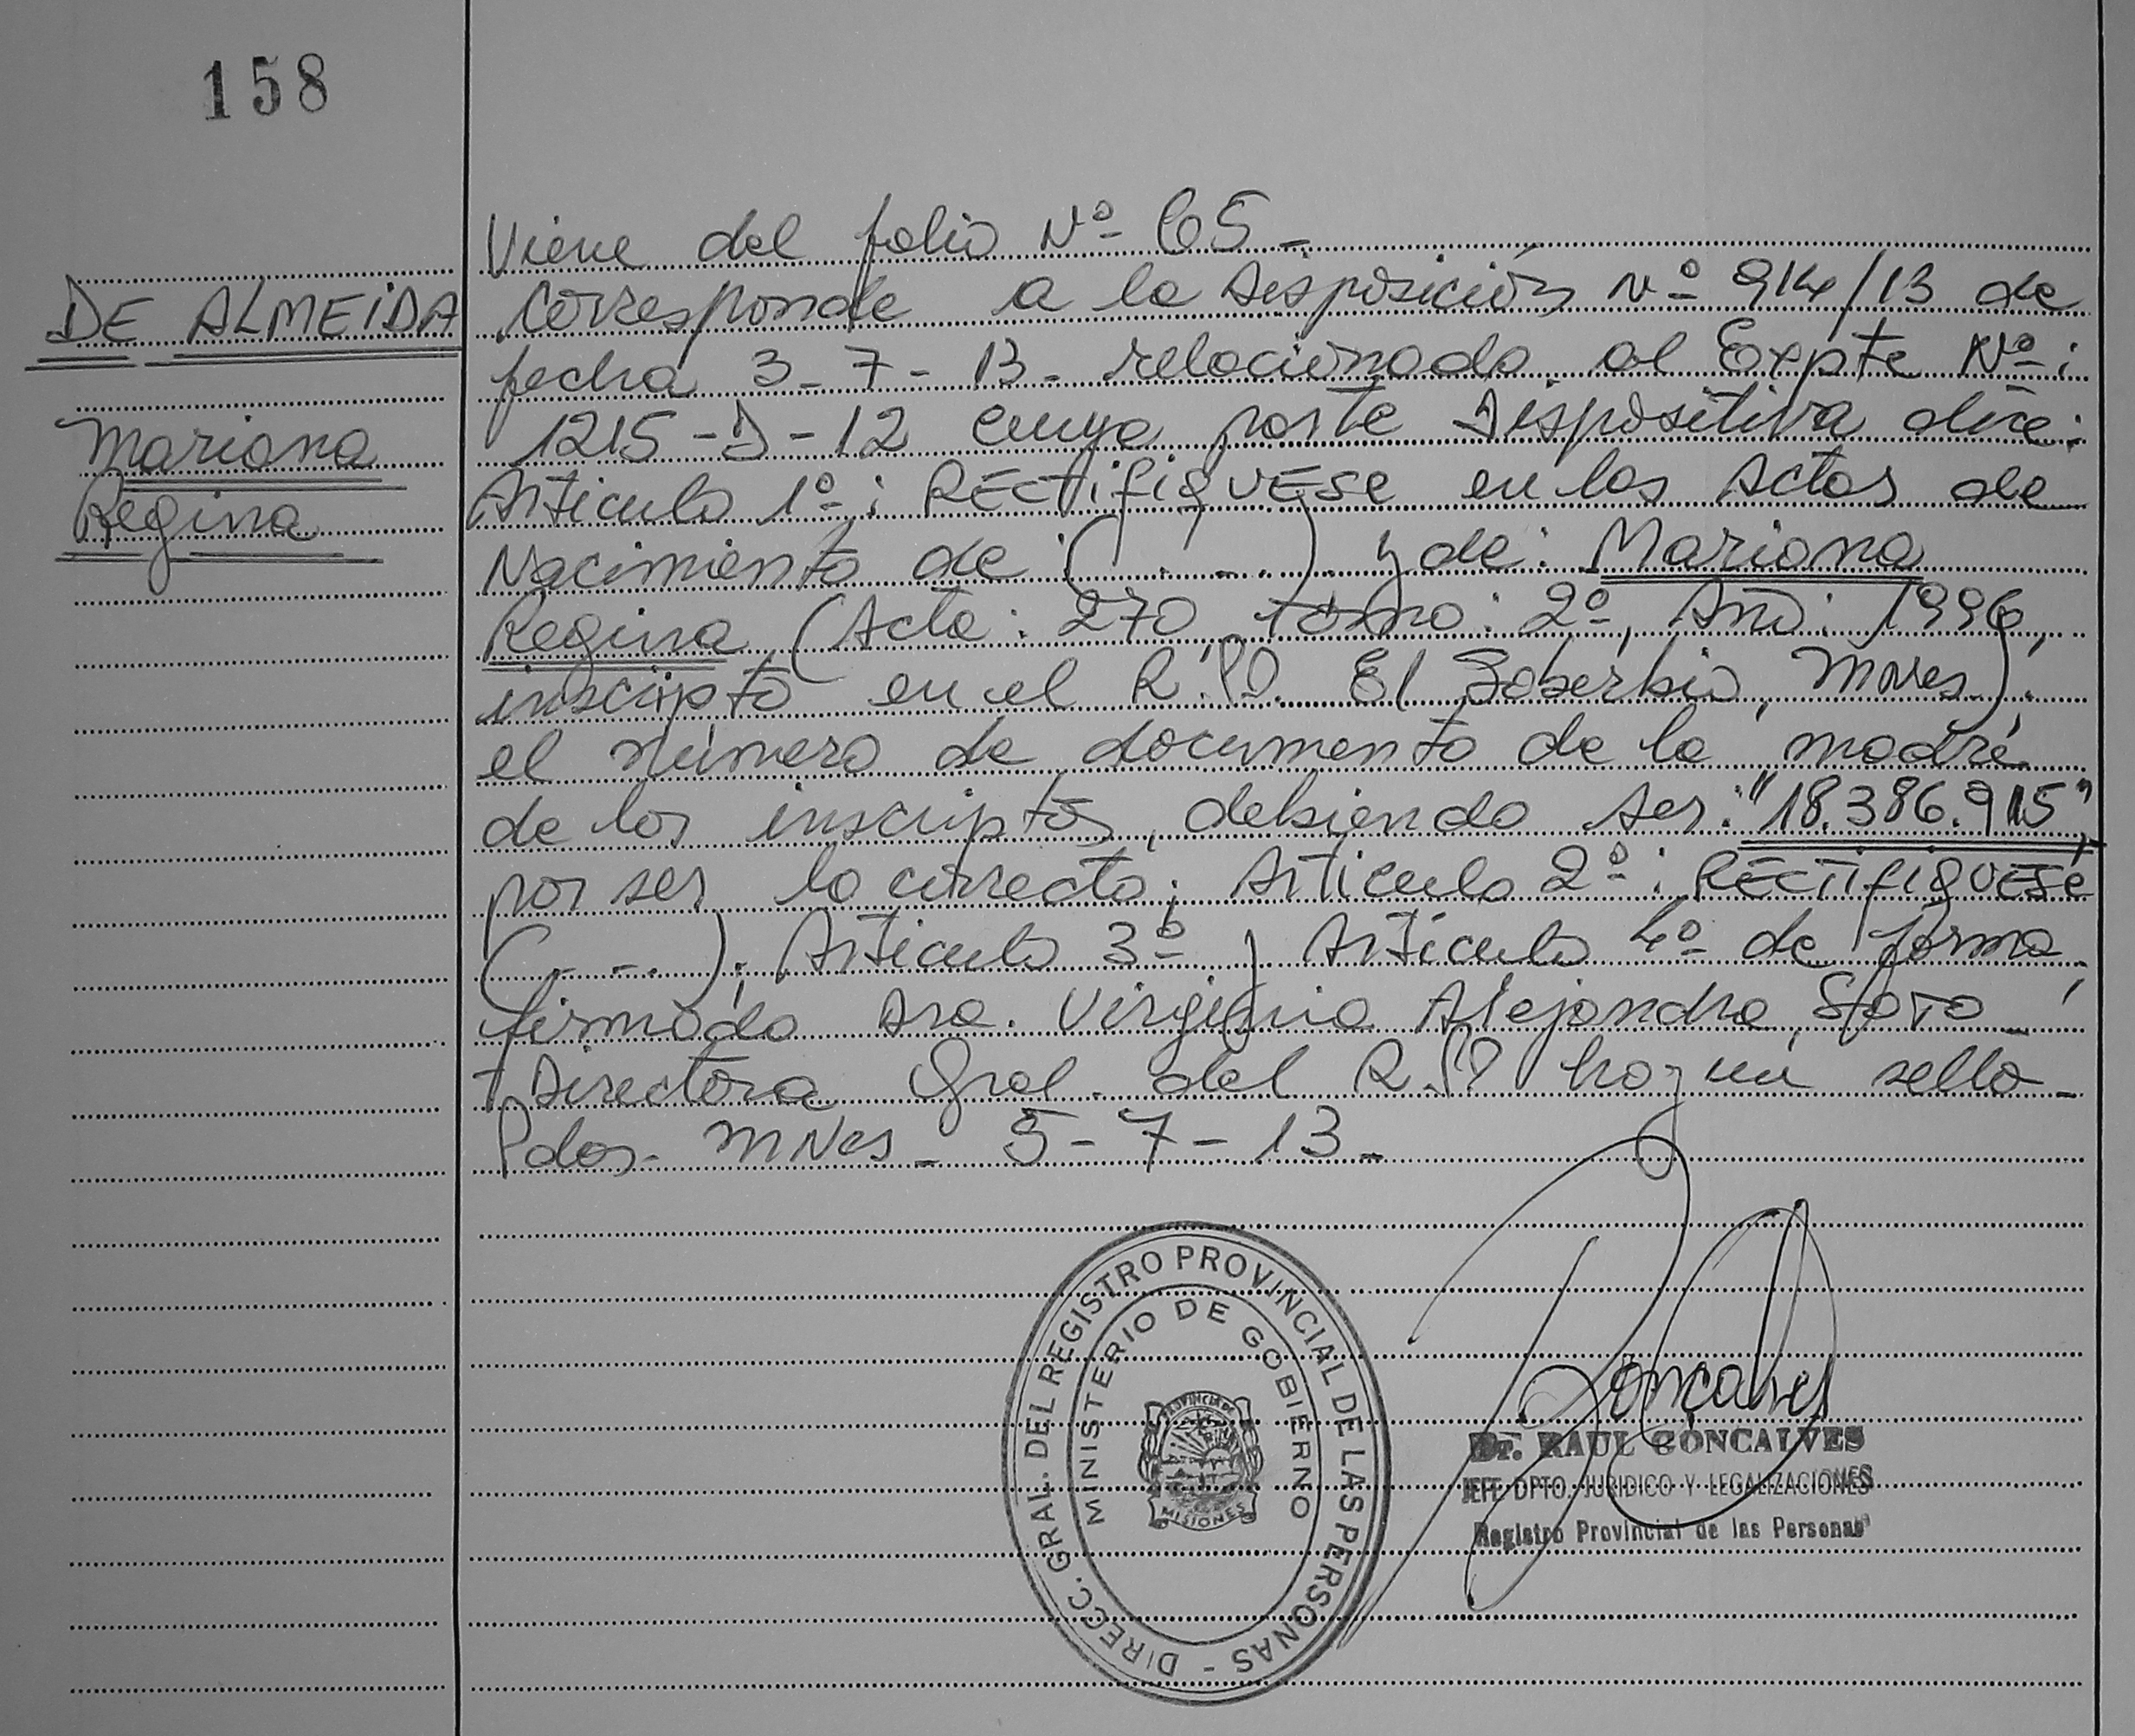 158
DE ALMEIDA
Mariana
Regina
Viene del folio Nº 65 -
Corresponde a la Disposición Nº 914/13 de
fecha 3-7-13- relacionado al Expte Nº:
1215-D-12 cuya parte Dispositiva dice:
Articulo 1º: RECTifiQUESE en las Actas de
Nacimiento de: (....). y de: Mariana
Regina (Acta: 270, tomo: 2º, Año: 1996,
inscripta en el R.P.P. El Soberbio, Mnes).
el número de documento de la madre
de los inscriptos, debiendo ser: "18.386.915",
por ser lo correcto; Articulo 2º: RECTifiQUESE
(....); Articulo 3º y Articulo 4º de forma
firmado Dra. Virginia Alejandra
Directora Gral. del R.P.P hay un sello -
Pdas. MNes - 5-7-13-
DIRECC. GRAL. DEL REGISTRO PROVINCIAL DE LAS PERSONAS -
MINISTERIO DE GOBIERNO
PROVINCIA DE
MISIONES
Goncalves
Dr. RAUL GONCALVES
JEFE DPTO. JURIDICO Y LEGALIZACIONES
Registro Provincial de las Personas